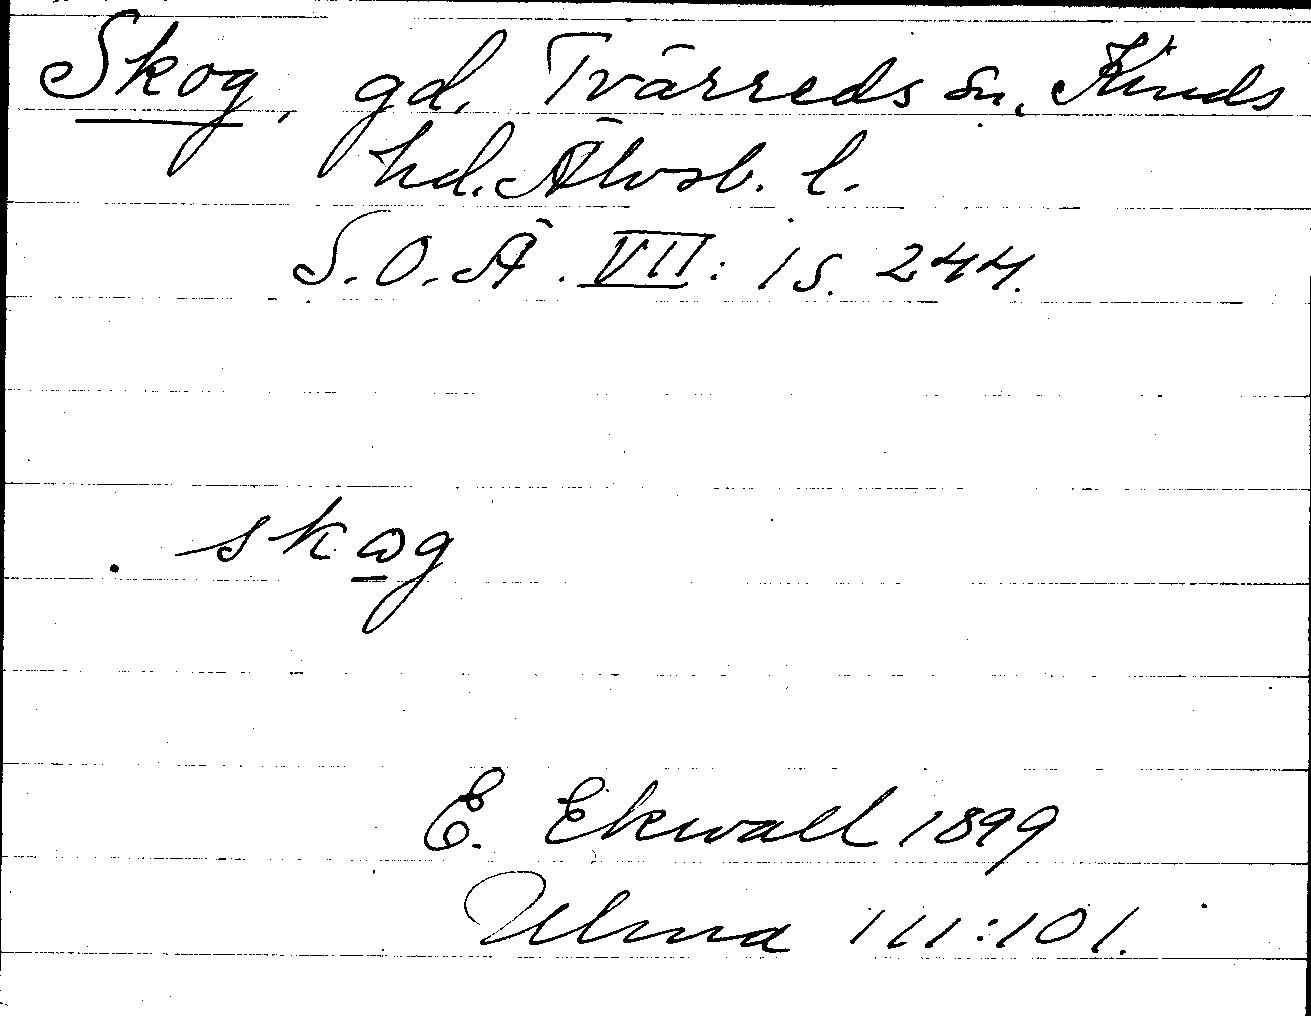 Skog, gd. Tvärreds sn, Kinds
hd. Älvsb. l.
S.O.Ä. VII: 1 s. 244.
skog
E. Ekwall 1899
Ulma 111:101.